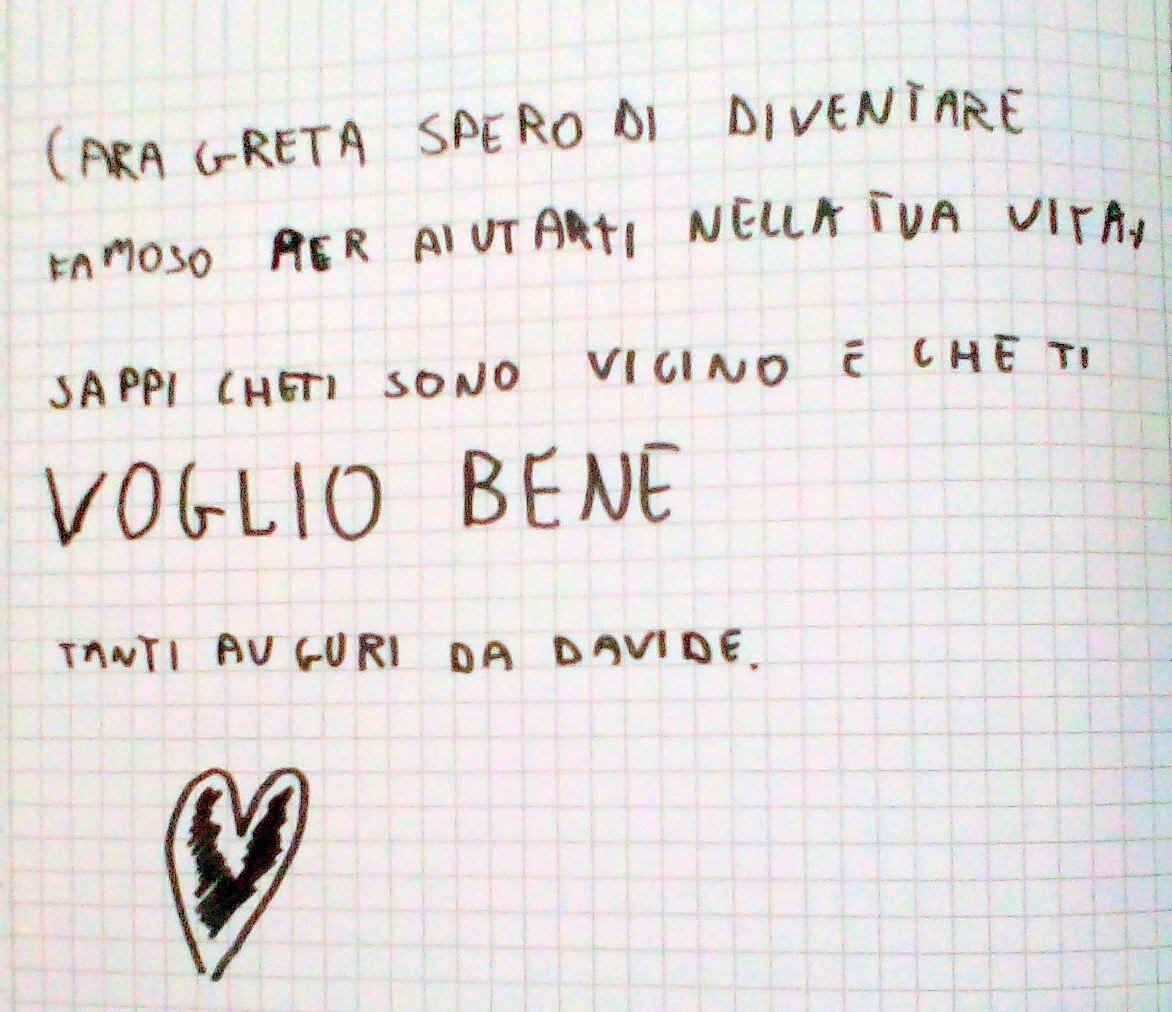 CARA GRETA SPERO DI DIVENTARE
FAMOSO PER AIUTARTI NELLA TUA VITA,
SAPPI CHETI SONO VICINO E CHE TI
VOGLIO BENE
TANTI AUGURI DA DAVIDE.